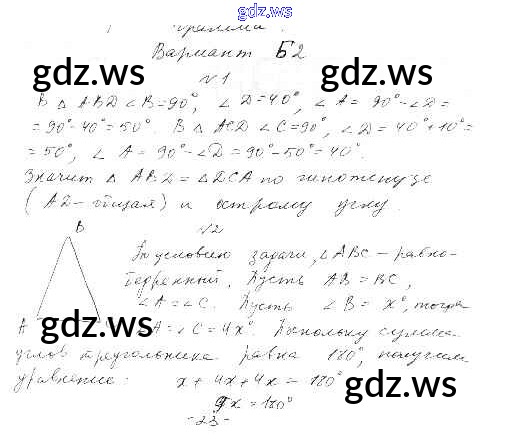 gdz.ws
Вариант Б2
gdz.ws gdz.ws
№1
В △ ABD ∠B=90°, ∠D=40°, ∠A = 90°-∠D=
=90°-40°=50°. В △ ACD ∠C=90°, ∠D = 40°+10°=
=50°, ∠ A = 90°-∠D=90°-50°=40°.
Значит △ ABD = △DCA по гипотенузе
(AD - общая) и острому углу.
№2
B
По условию задачи, △ABC - равно-
бедренный. Пусть AB = BC,
∠A=∠C. Пусть ∠B = x°, тогда
A ∠A=∠C=4x°. Поскольку сумма
gdz.ws gdz.ws
углов треугольника равна 180°, получим
уравнение: x + 4x + 4x = 180°
gdz.ws
9x = 180°
-23-